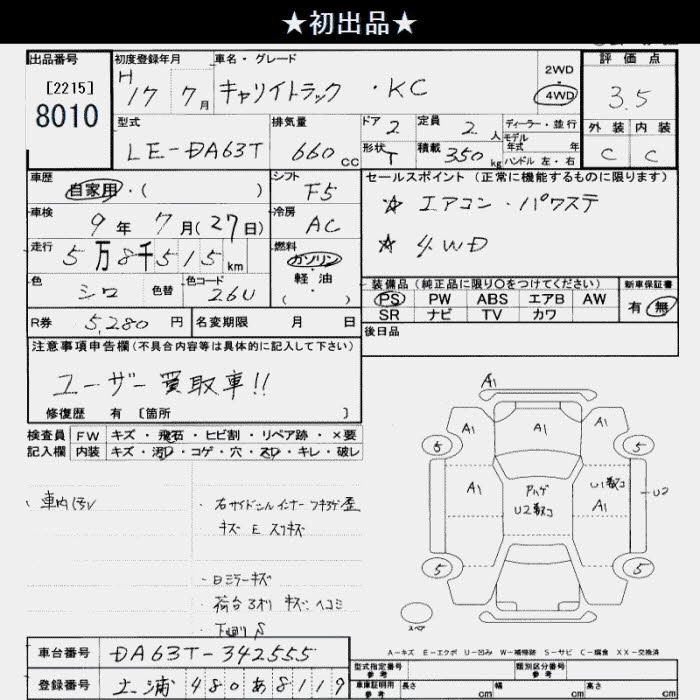 ★初出品★
出品番号 初度登録年月 車名・グレード 2WD 評価点
[2215] H 17 7月 キャリイトラック ・KC 4WD 3.5
8010
型式 排気量 ドア 2 定員 2人 ディーラー・並行 外装 内装
モデル
年式 年
LE-DA63T 660cc 形状 T 積載 350kg ハンドル 左・右 C C
車歴 シフト セールスポイント(正常に機能するものに限ります)
自家用・( ) F5 ☆ エアコン・パワステ
車検 9年7月(27日) 冷房 AC
走行 5万8千515km 燃料 ガソリン ☆ 4WD
軽・油
( )
色 シロ 色替 色コード 26U 装備品(純正品に限り〇をつけてください) 新車保証書
PS PW ABS エアB AW 有 無
SR ナビ TV カワ
R券 5,280円 名変期限 月 日 後日品
注意事項申告欄(不具合内容等は具体的に記入して下さい)
ユーザー買取車!!
修復歴 有 [箇所 ]
検査員 FW キズ・飛石・ヒビ割・リペア跡・×要
記入欄 内装 キズ・汚レ・コゲ・穴・スレ・キレ・破レ
A1
A1 A1 A1
5 5
・車内汚レ
A1 アハゲ U2数コ U1数コ A1 U2
キズ E スリキズ
・日ミラーキズ
・荷台3オリ キズ ヘコミ
・下廻りS
5 5
スペア
A-キズ E-エクボ U-凹み W-補修跡 S-サビ C-腐食 XX-交換済
車台番号 DA63T-342555
型式指定番号 参考 類別区分番号 参考
登録番号 土浦 480 あ 8119
車庫証明用 参考 長さ cm 幅 cm 高さ cm